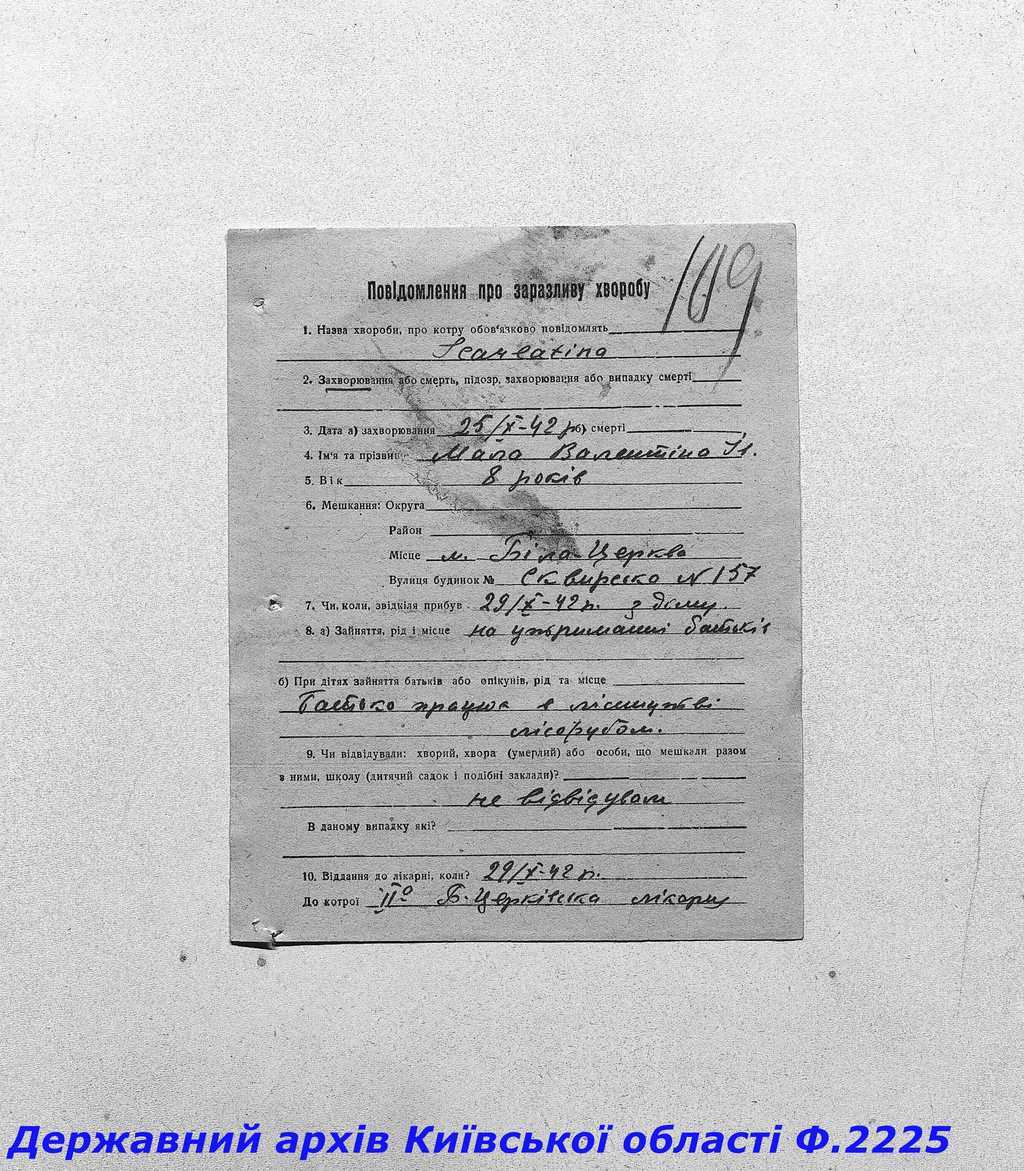 109
Повідомлення про заразливу хворобу
1. Назва хвороби, про котру обов'язково повідомлять
Scarlatina
2. Захворювання або смерть, підозр, захворювання або випадку смерті
3. Дата а) захворювання 25/X-42 р. б) смерті
4. Ім'я та прізвище Мала Валентіна
5. Вік 8 років
6. Мешкання: Округа
Район
Місце м. Біла-Церква
Вулиця будинок № Сквирска N 157
7. Чи, коли, звідкіля прибув 29/X-42 р. з дому.
8. а) Зайняття, рід і місце на утриманні батьків
б) При дітях зайняття батьків або опікунів, рід та місце
Батько працює в лісництві
лісорубом.
9. Чи відвідували: хворий, хвора (умерлий) або особи, що мешкали разом
з ними, школу (дитячий садок і подібні заклади)?
не відвідувала
В даному випадку які?
10. Віддання до лікарні, коли? 29/X-42 р.
До котрої II° Б-Церківська лікарня
Державний архів Київської області Ф.2225